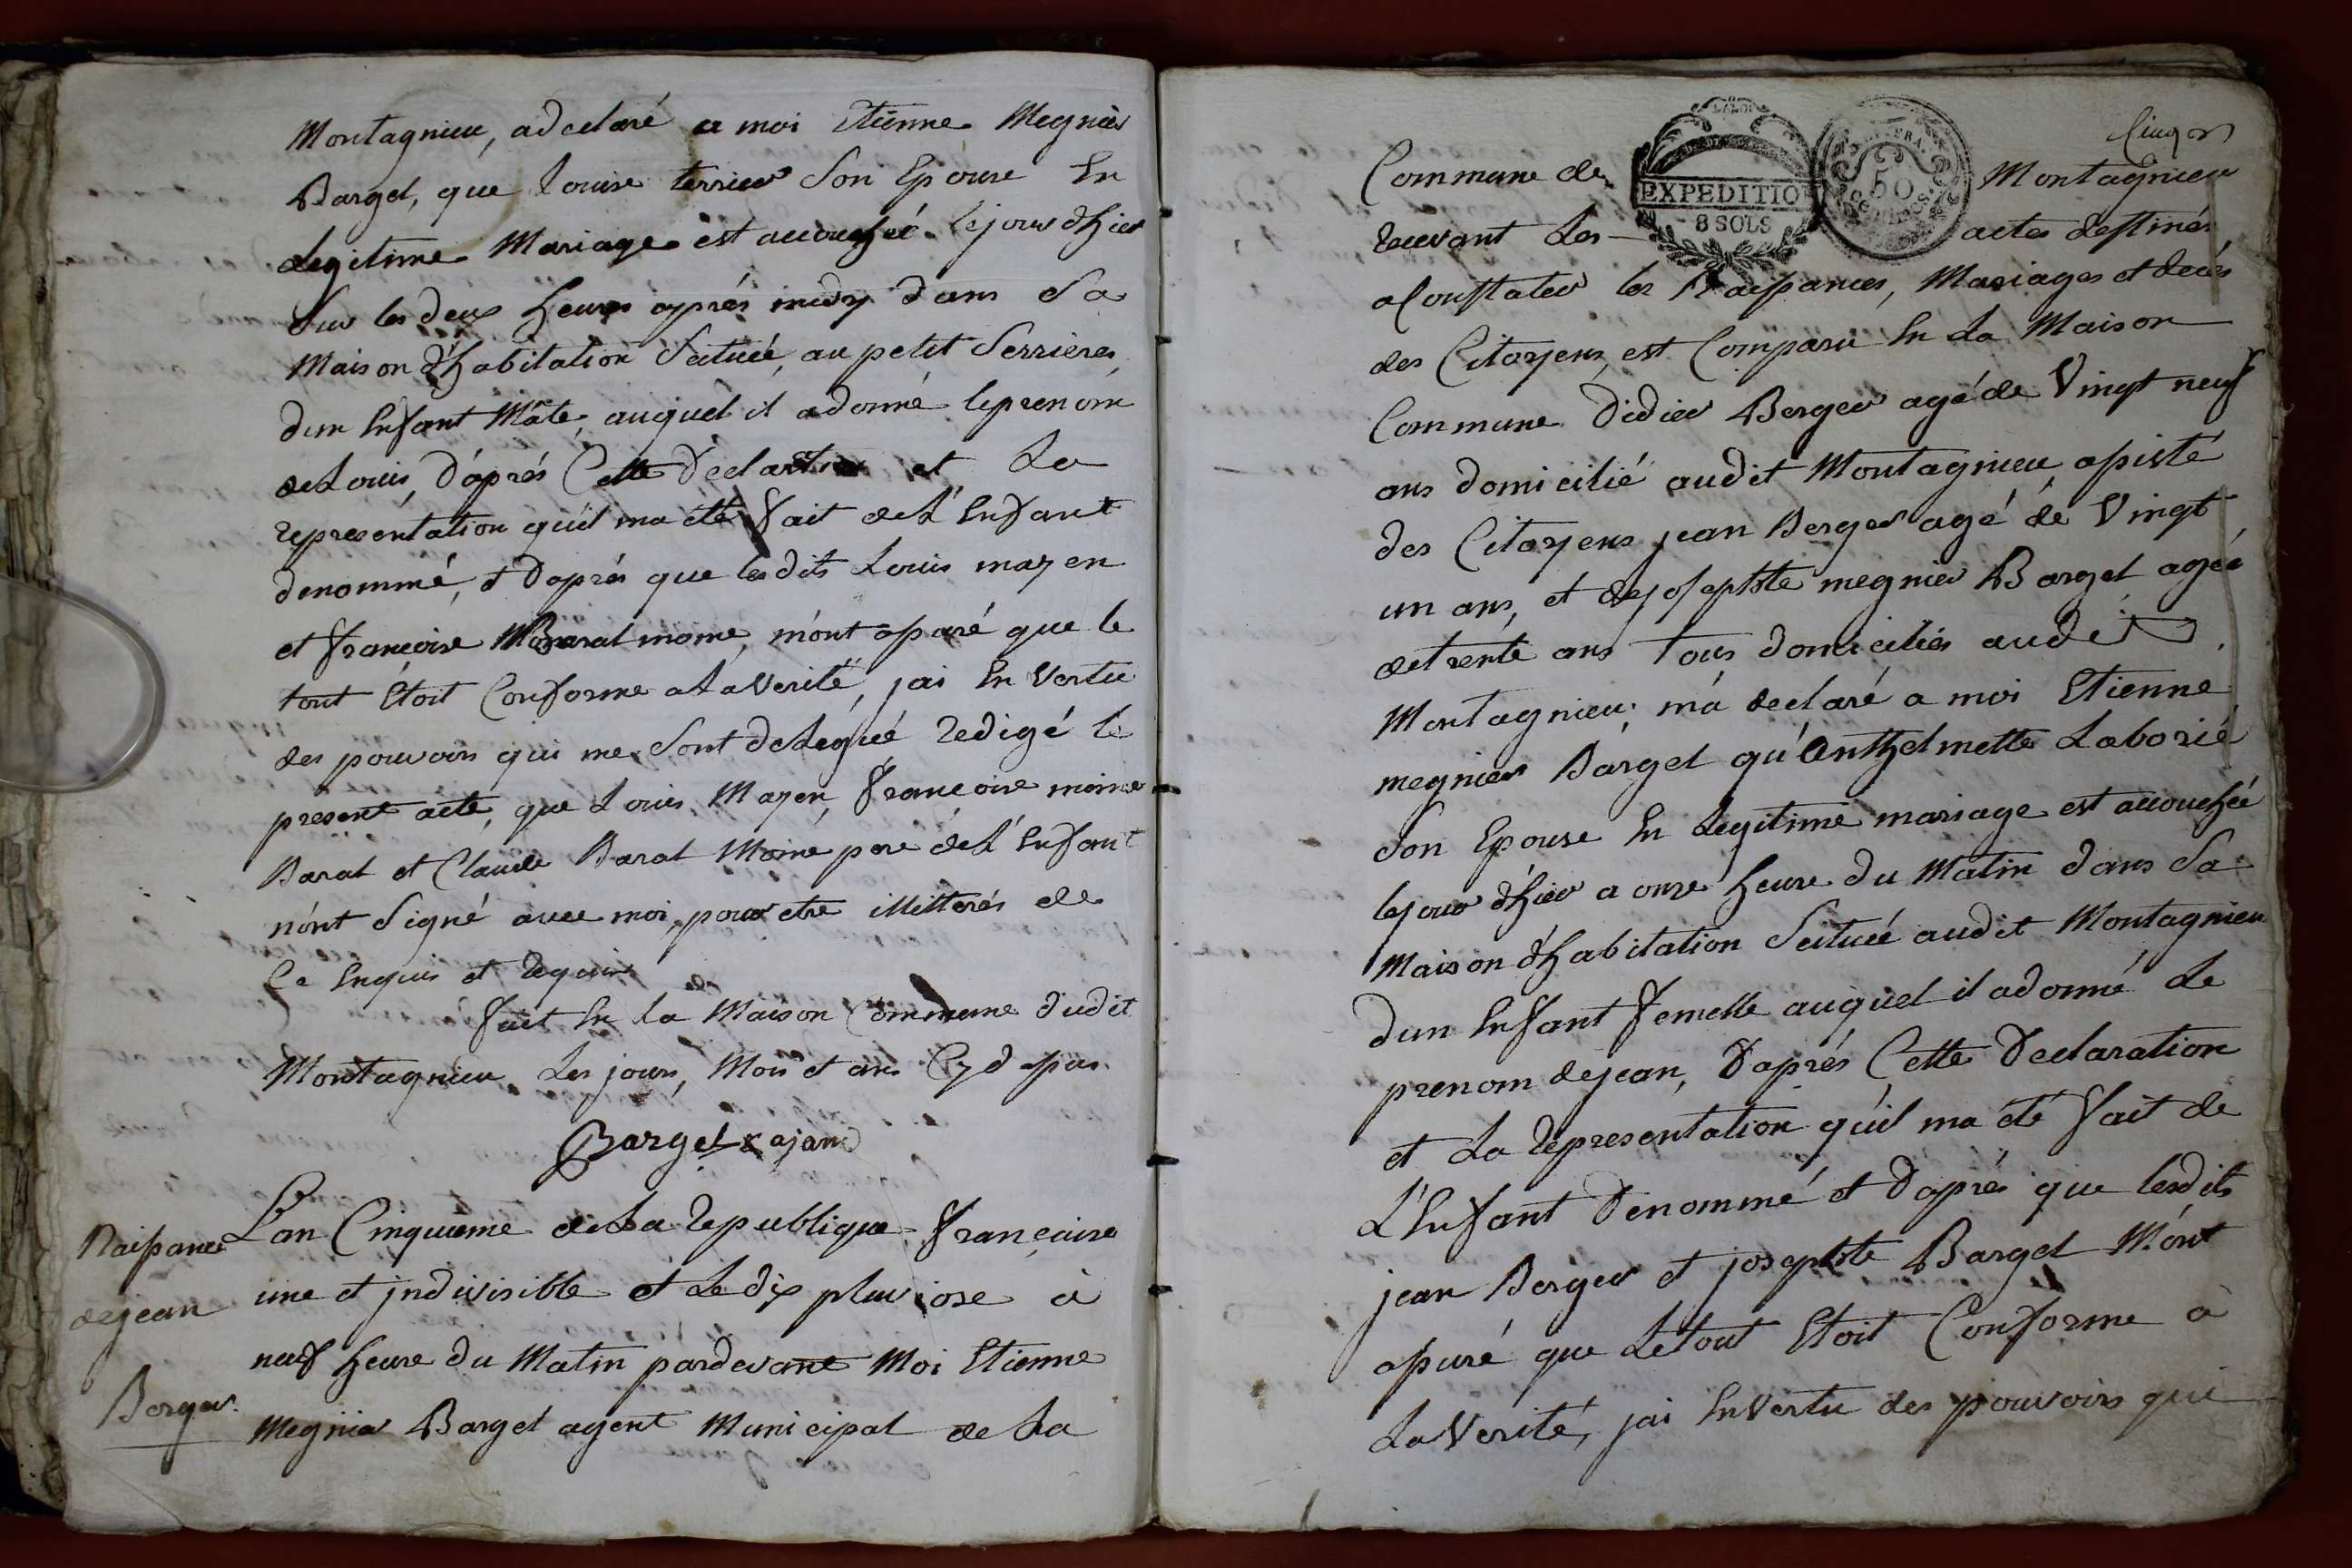 Montagnieu, a declaré a moi Etienne Megnier
Bargel, que Louise terrier Son Epouse En
Legitime Mariage est accouchée le jour d'hier
Sur les deux heures aprés midy dans Sa
Maison d'habitation Scituée, au petit Serrieres
dun Enfant Mâle, auquel il a donné le prenom
de Louis, d'áprés Cette Declaration et La
representation qu'il ma eté fait de L'Enfant
denommé, et daprés que lesdits Louis mayen
et françoise Barral moine, mónt assuré que le
tout Etoit Conforme a La Verité, jai En Vertu
des pouvoirs qui me Sont delegué redigé le
present acte, que Louis Mayen, françoise moine
Baral et Claude Baral Moine pere de L'Enfant
nónt Signé avec moi, pour etre illitterés de
Ce Enquis et requis
fait En la Maison Commune dudit
Montagnieu Les jours, Mois et ans Cy dessus.
Bargel
Naissance
de jean
Berger
L'an Cinquieme de La republique française
une et jndivisible et Le dix pluviose à
neuf heure du Matin pardevant Moi Etienne
Megnier Bargel agent Municipal de La
Commune de Montagnieu
EXPEDITION
8 SOLS
50
CENTIMES
recevant Les actes destinés
a Constater les Naissances, Mariages et decés
des Citoyens, est Comparu En La Maison
Commune Didier Berger agé de Vingt neuf
ans domicilié audit Montagnieu, assisté
des Citoyens jean Berger agé de Vingt
un ans, et de josephte megnier Bargel agée
de trente ans Tous domiciliés audit
Montagnieu, má declaré a moi Etienne
megnier Bargel qu'Anthelmette Laborié
Son Epouse En Legitime mariage est accouchée
le jour d'hier a onze heure du Matin dans Sa
Maison d'habitation Scituée audit Montagnieu
dun Enfant femelle auquel il a donné Le
prenom de jean, D'aprés Cette Declaration
et La representation qu'il ma eté fait de
L'Enfant Denommé et D'aprés que lesdits
jean Berger et josephte Bargel M'ónt
assuré que Le tout Etoit Conforme à
La Verité, jai En Vertu des pouvoirs qui